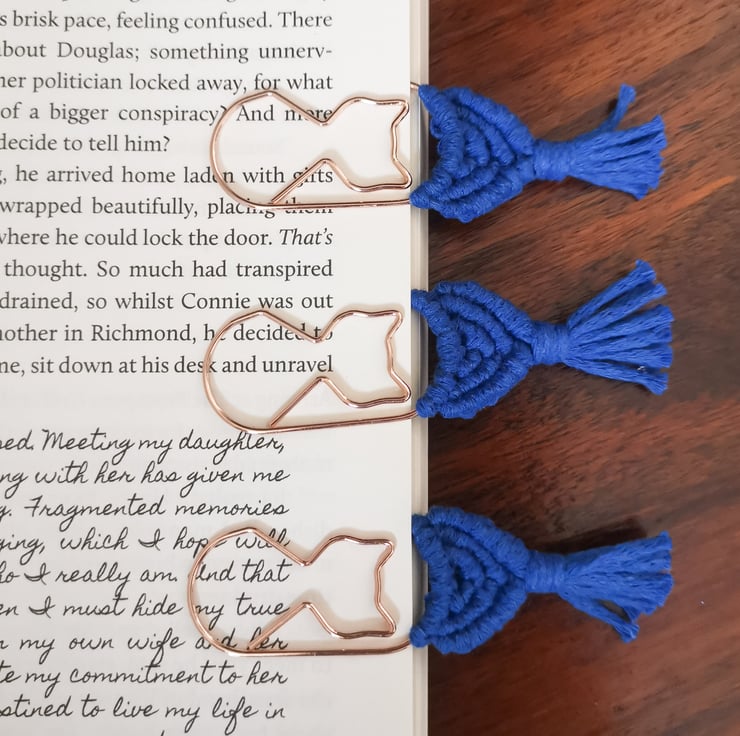 s brisk pace, feeling confused. There
about Douglas; something unnerv-
her politician locked away, for what
of a bigger conspiracy? And more
decide to tell him?
, he arrived home laden with gifts
wrapped beautifully, placing them
where he could lock the door. That's
thought. So much had transpired
drained, so whilst Connie was out
nother in Richmond, he decided to
ne, sit down at his desk and unravel
sed. Meeting my daughter,
ng with her has given me
g. Fragmented memories
ging, which I hope will
ho I really am. And that
en I must hide my true
n my own wife and her
te my commitment to her
stined to live my life in